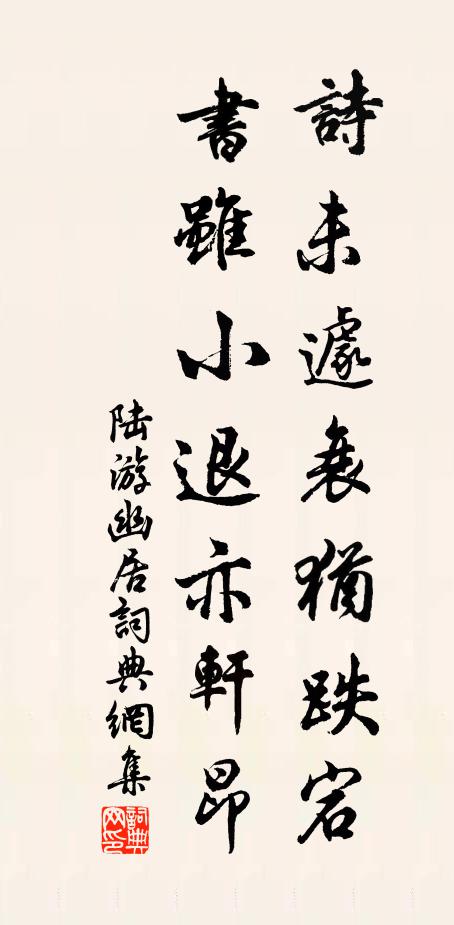 詩未遽衰猶跌宕
書雖小退亦軒昂
陆游幽居詞典網集
詞典网印